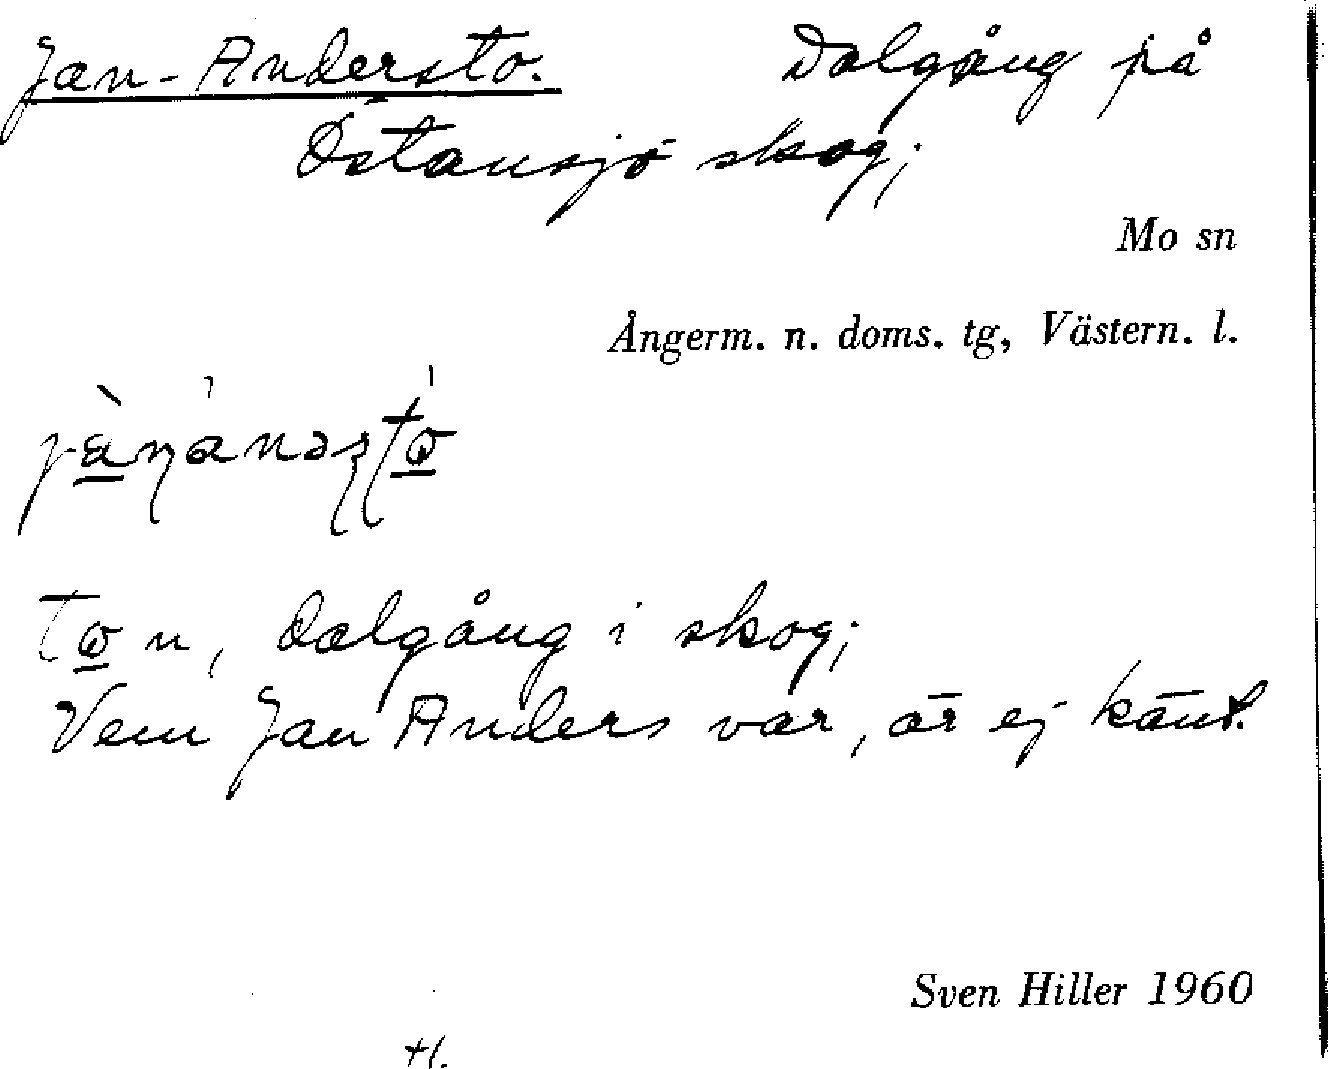 Jan-Andersto. Dalgång på
Östansjö skog;
Mo sn
Ångerm. n. doms. tg, Västern. l.
to n, dalgång i skog;
Vem Jan Anders var, är ej känt.
Sven Hiller 1960
H.